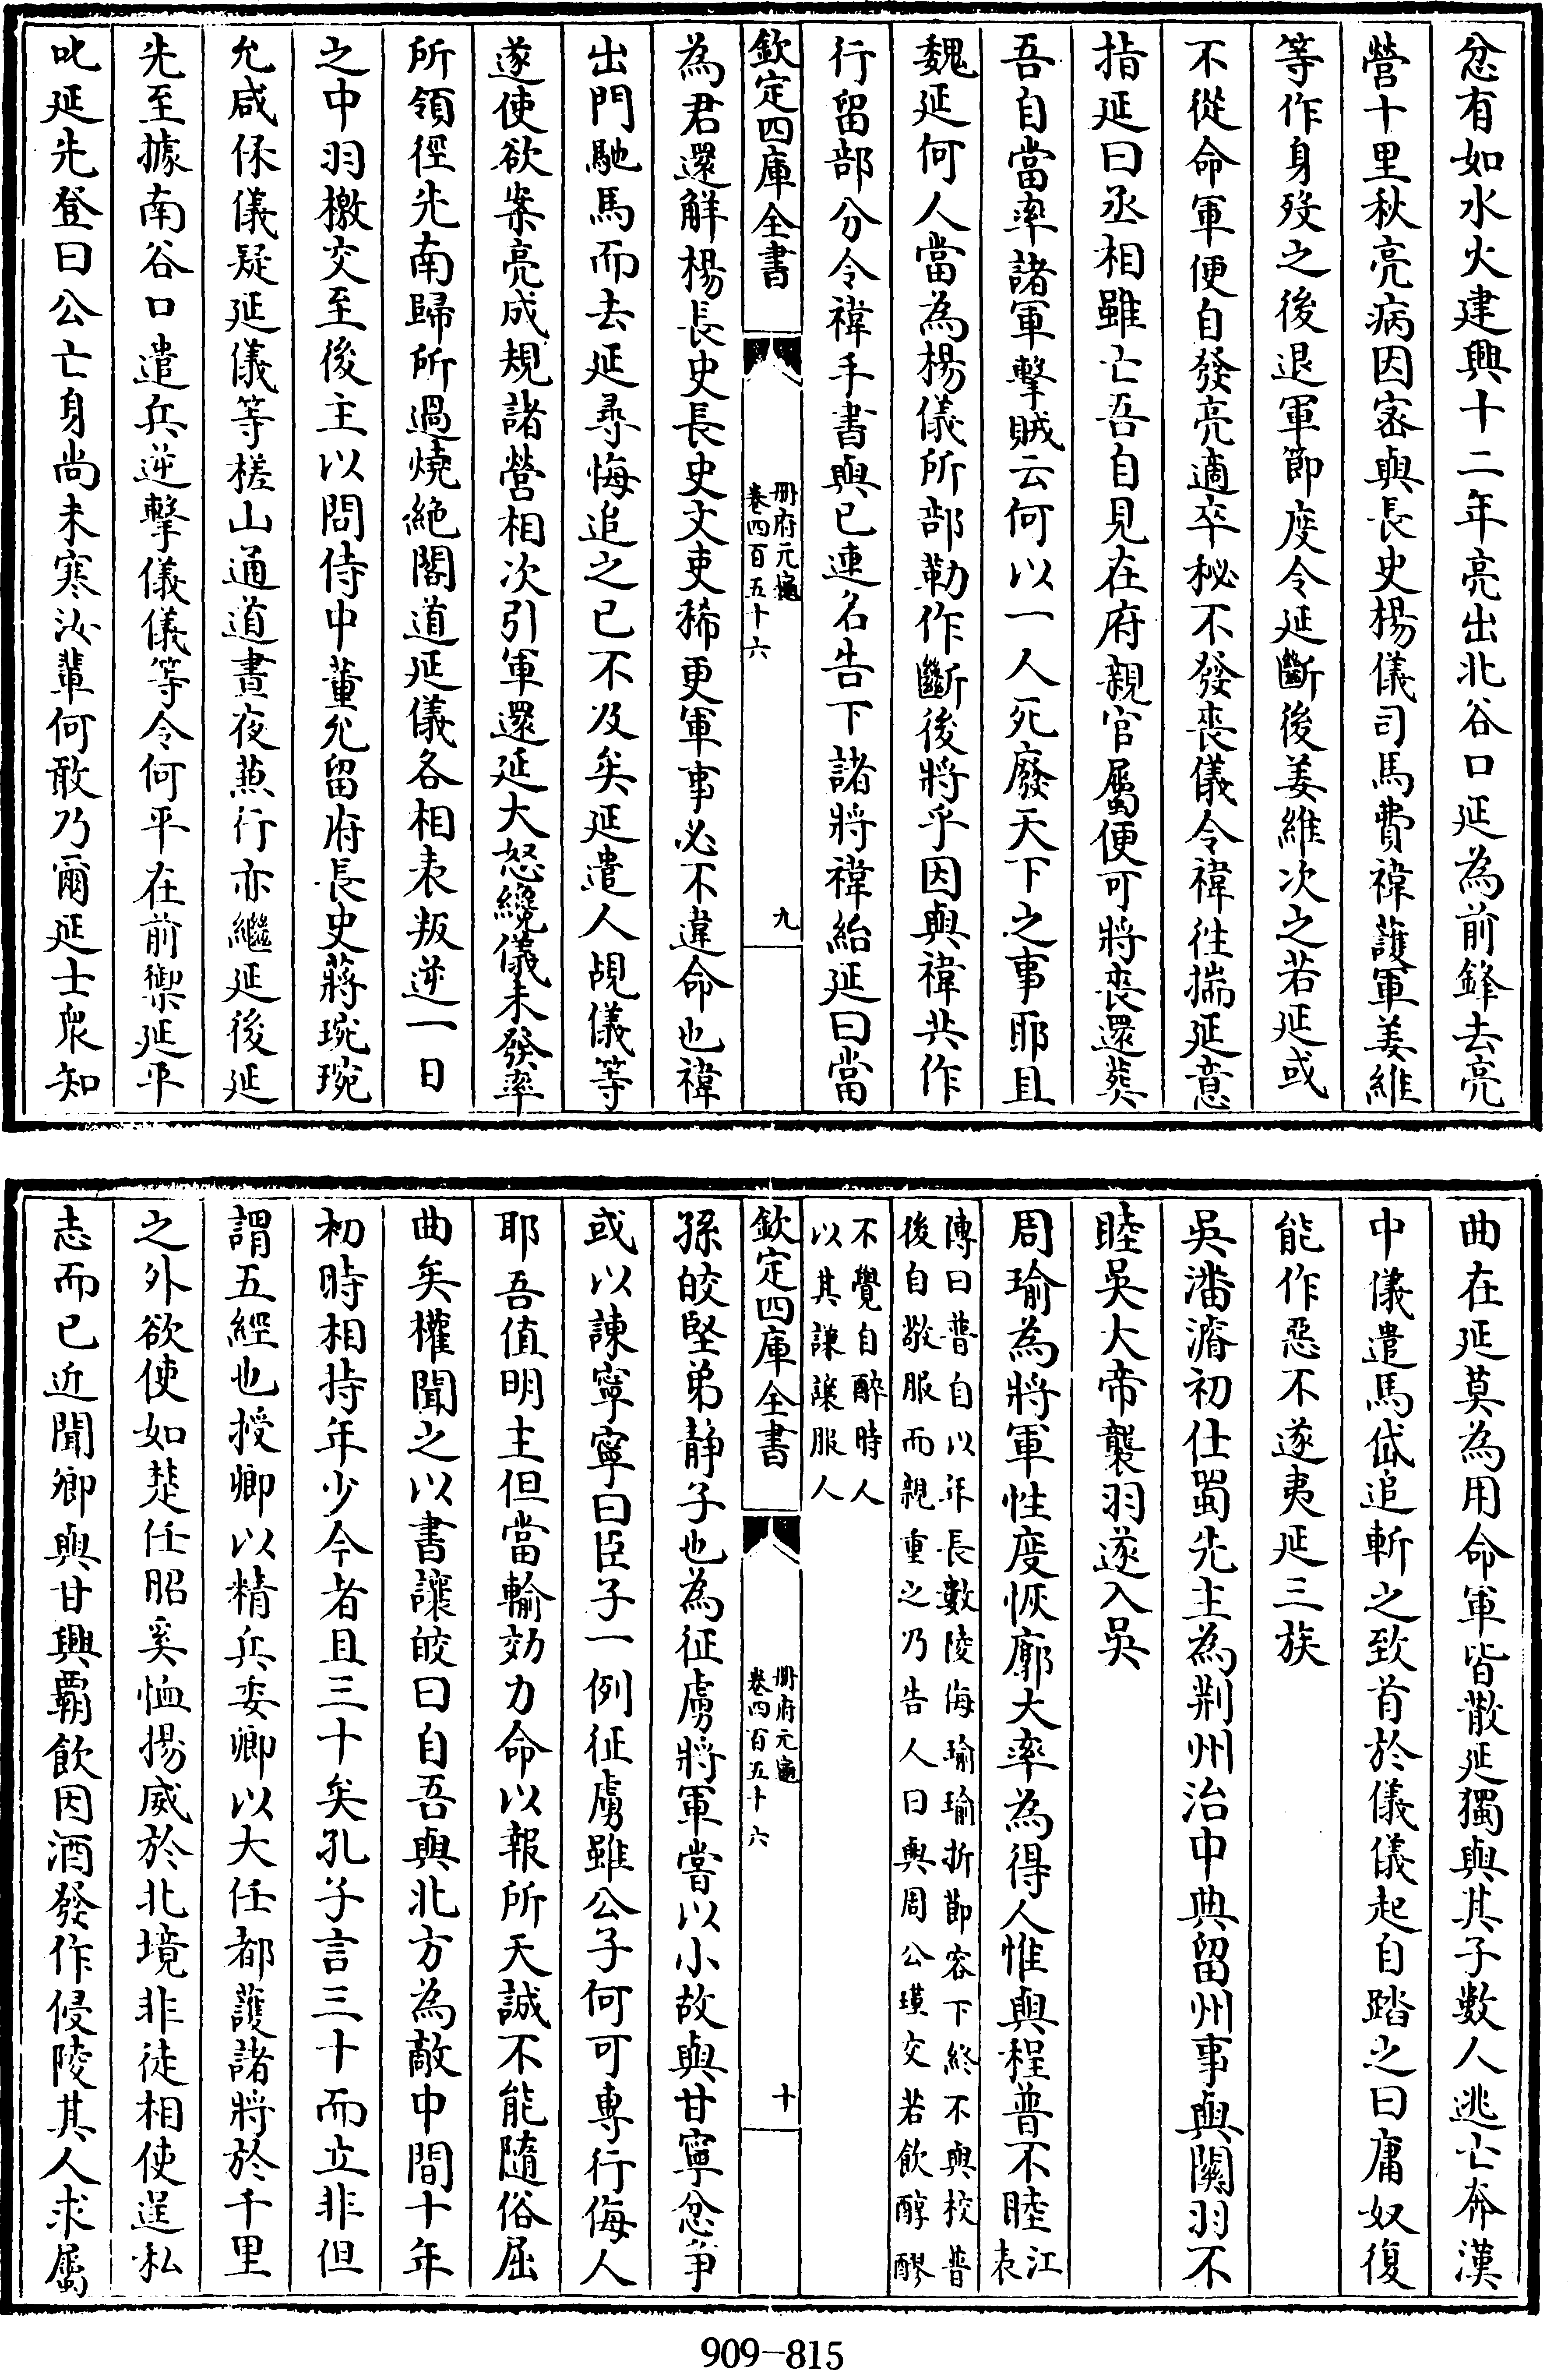 忿有如水火建興十二年亮出北谷口延為前鋒去亮
營十里秋亮病因宻與長史楊儀司馬費禕護軍姜維
等作身歿之後退軍節度令延斷後姜維次之若延或
不從命軍便自發亮適卒秘不發喪儀令禕徃揣延意
指延曰丞相雖亡吾自見在府親官屬便可將喪還葬
吾自當率諸軍擊賊云何以一人死廢天下之事耶且
魏延何人當為楊儀所部勒作斷後將乎因與禕共作
行留部分令禕手書與已連名告下諸將禕紿延曰當
欽定四庫全書
冊府元龜
卷四百五十六
九
為君還解楊長史長史文吏稀更軍事必不違命也禕
出門馳馬而去延尋悔追之已不及矣延遣人覘儀等
遂使欲案亮成規諸營相次引軍還延大怒纔儀未發率
所領徑先南歸所過燒絶閣道延儀各相表叛逆一日
之中羽檄交至後主以問侍中董允留府長史蔣琬琬
允咸保儀疑延儀等槎山通道晝夜兼行亦繼延後延
先至據南谷口遣兵逆擊儀儀等令何平在前禦延平
叱延先登曰公亡身尚未寒汝輩何敢乃爾延士衆知
曲在延莫為用命軍皆散延獨與其子數人逃亡奔漢
中儀遣馬岱追斬之致首於儀儀起自踏之曰庸奴復
能作惡不遂夷延三族
吳潘濬初仕蜀先主為荆州治中典留州事與關羽不
睦吳大帝襲羽遂入吳
周瑜為將軍性度恢廓大率為得人惟與程普不睦江
表
傳曰普自以年長數陵侮瑜瑜折節容下終不與校普
後自敬服而親重之乃告人曰與周公瑾交若飲醇醪
不覺自醉時人
以其謙讓服人
欽定四庫全書
冊府元龜
卷四百五十六
十
孫皎堅弟静子也為征虜將軍嘗以小故與甘寧忿爭
或以諫寧寧曰臣子一例征虜雖公子何可專行侮人
耶吾值明主但當輸効力命以報所天誠不能隨俗屈
曲矣權聞之以書讓皎曰自吾與北方為敵中間十年
初時相持年少今者且三十矣孔子言三十而立非但
謂五經也授卿以精兵委卿以大任都護諸將於千里
之外欲使如楚任昭奚恤揚威於北境非徒相使逞私
志而已近聞卿與甘興霸飲因酒發作侵陵其人求屬
909-815